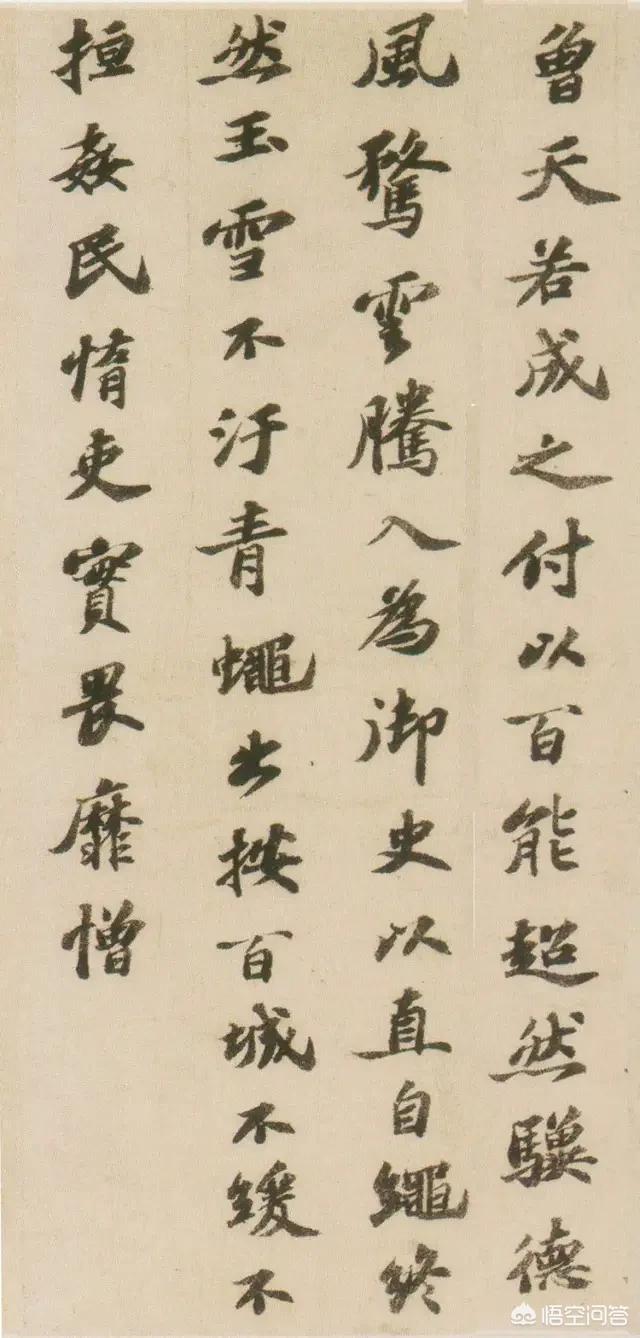 曾天若成之付以百能超然驥德
風騖雲騰入為御史以直自繩終
然玉雪不汙青蠅出按百城不緩不
搄姦民惰吏實畏靡憎
悟空问答